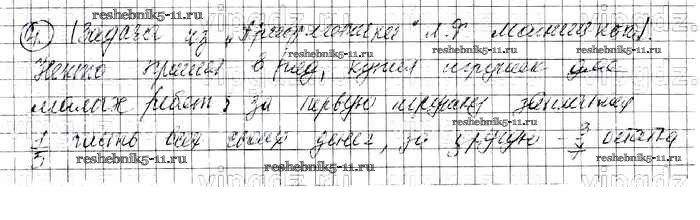 4. (Задача из „Арифметики" Л.Ф. Магницкого).
Некто пришел в ряд, купил игрушек для
малых ребят: за первую игрушку заплатил
1/5 часть всех своих денег, за другую 3/7 остатка
reshebnik5-11.ru
reshebnik5-11.ru
reshebnik5-11.ru
reshebnik5-11.ru
reshebnik5-11.ru
reshebnik5-11.ru